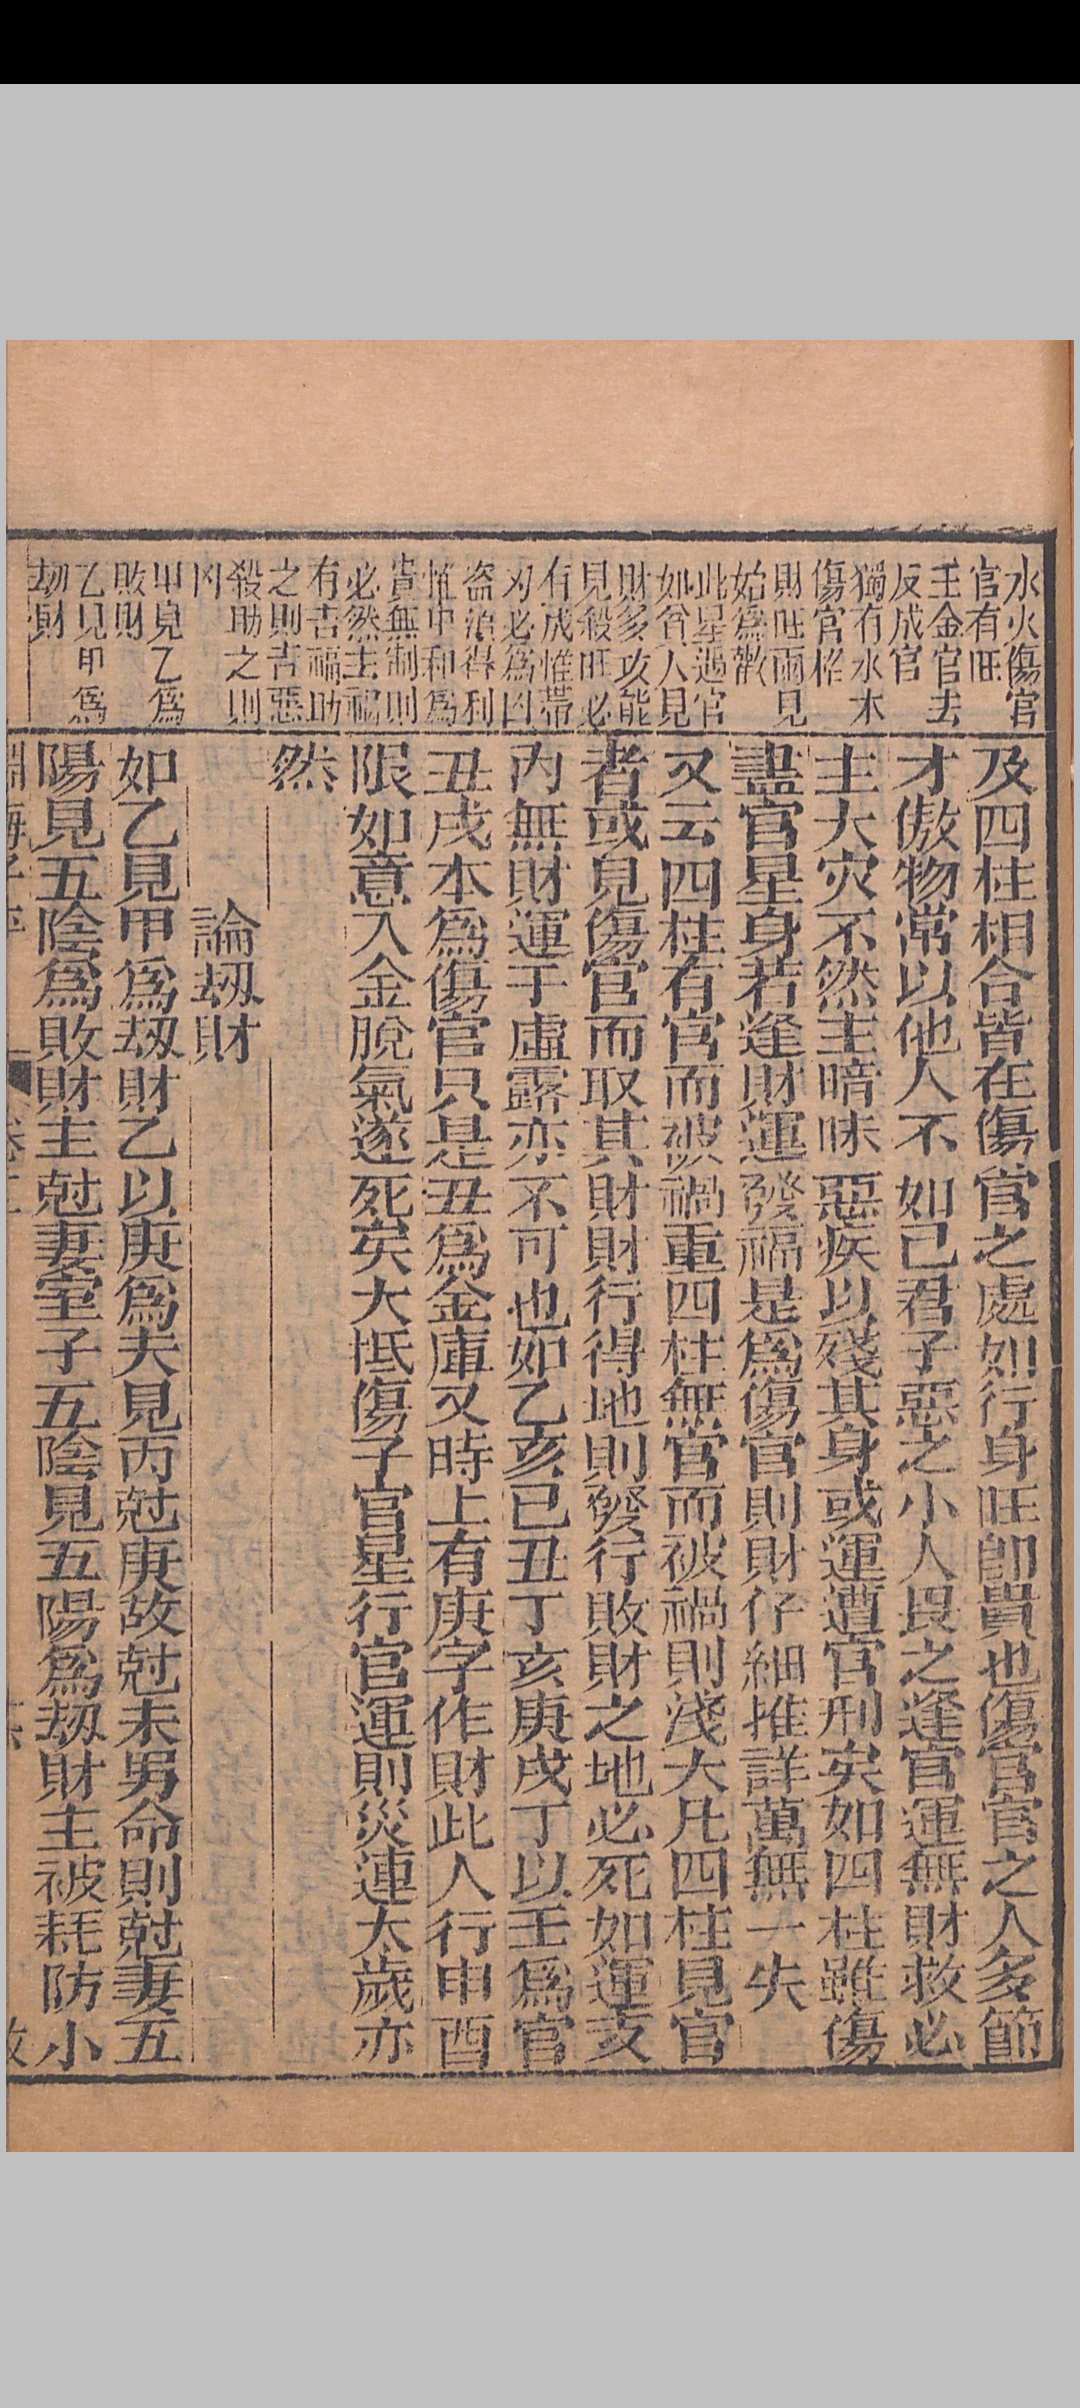 水火傷官
官有旺
土金官去
反成官
獨有水木
傷官格
財旺兩見
始為歡
此星遇官
如貧人見
財多攻能
見殺旺必
有成惟帶
刃必為凶
盗治得利
惟中和為
貴無制則
必然主禍
有吉福助
之則吉惡
殺助之則
凶
甲見乙爲
敗財
乙見甲爲
刼財
及四柱相合皆在傷官之處如行身旺卽貴也傷官官之人多節
才傲物常以他人不如己君子惡之小人畏之逢官運無財救必
主大災不然主暗昧惡疾以殘其身或運遭官刑矣如四柱雖傷
盡官星身若逢財運發福是爲傷官則財仔細推詳萬無一失
又云四柱有官而被禍重四柱無官而被禍則淺大凡四柱見官
者或見傷官而取其財財行得地則發行敗財之地必死如運支
內無財運于虛露亦不可也如乙亥己丑丁亥庚戌丁以壬爲官
丑戌本爲傷官只是丑爲金庫又時上有庚字作財此人行申酉
限如意入金脫氣遂死矣大怟傷子官星行官運則災連太歲亦
然
論刼財
如乙見甲爲刼財乙以庚爲夫見丙尅庚故尅夫男命則尅妻五
陽見五陰爲敗財主尅妻室子五陰見五陽爲刼財主被耗防小